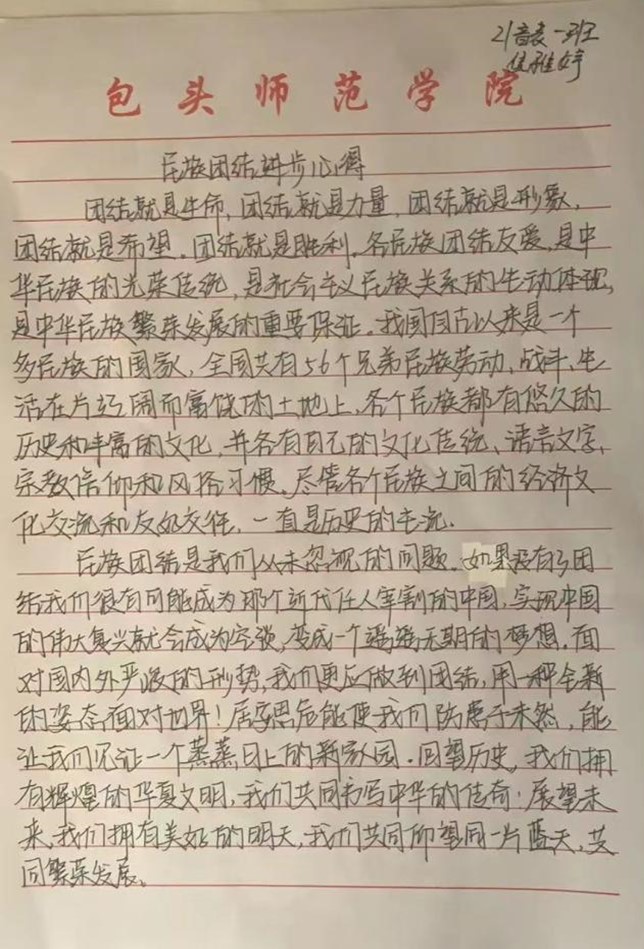 21音表一班
包头师范学院
民族团结进步心得
团结就是生命,团结就是力量,团结就是形象,
团结就是希望,团结就是胜利。各民族团结友爱,是中
华民族的光荣传统,是社会主义民族关系的生动体现,
是中华民族繁荣发展的重要保证。我国自古以来是一个
多民族的国家,全国共有56个兄弟民族劳动、战斗、生
活在片辽阔而富饶的土地上,各个民族都有悠久的
历史和丰富的文化,并各有自己的文化传统、语言文字、
宗教信仰和风俗习惯。尽管各个民族之间的经济文
化交流和友好交往,一直是历史的主流.
民族团结是我们从未忽视的问题。如果没有了团
结我们很有可能成为那个近代任人宰割的中国,实现中国
的伟大复兴就会成为空谈,变成一个遥遥无期的梦想。面
对国内外严峻的形势,我们更应做到团结,用一种全新
的姿态面对世界!居安思危能使我们防患于未然,能
让我们见证一个蒸蒸日上的新家园。回望历史,我们拥
有辉煌的华夏文明,我们共同书写中华的传奇;展望未
来,我们拥有美好的明天,我们共同仰望同一片蓝天,共
同繁荣发展。